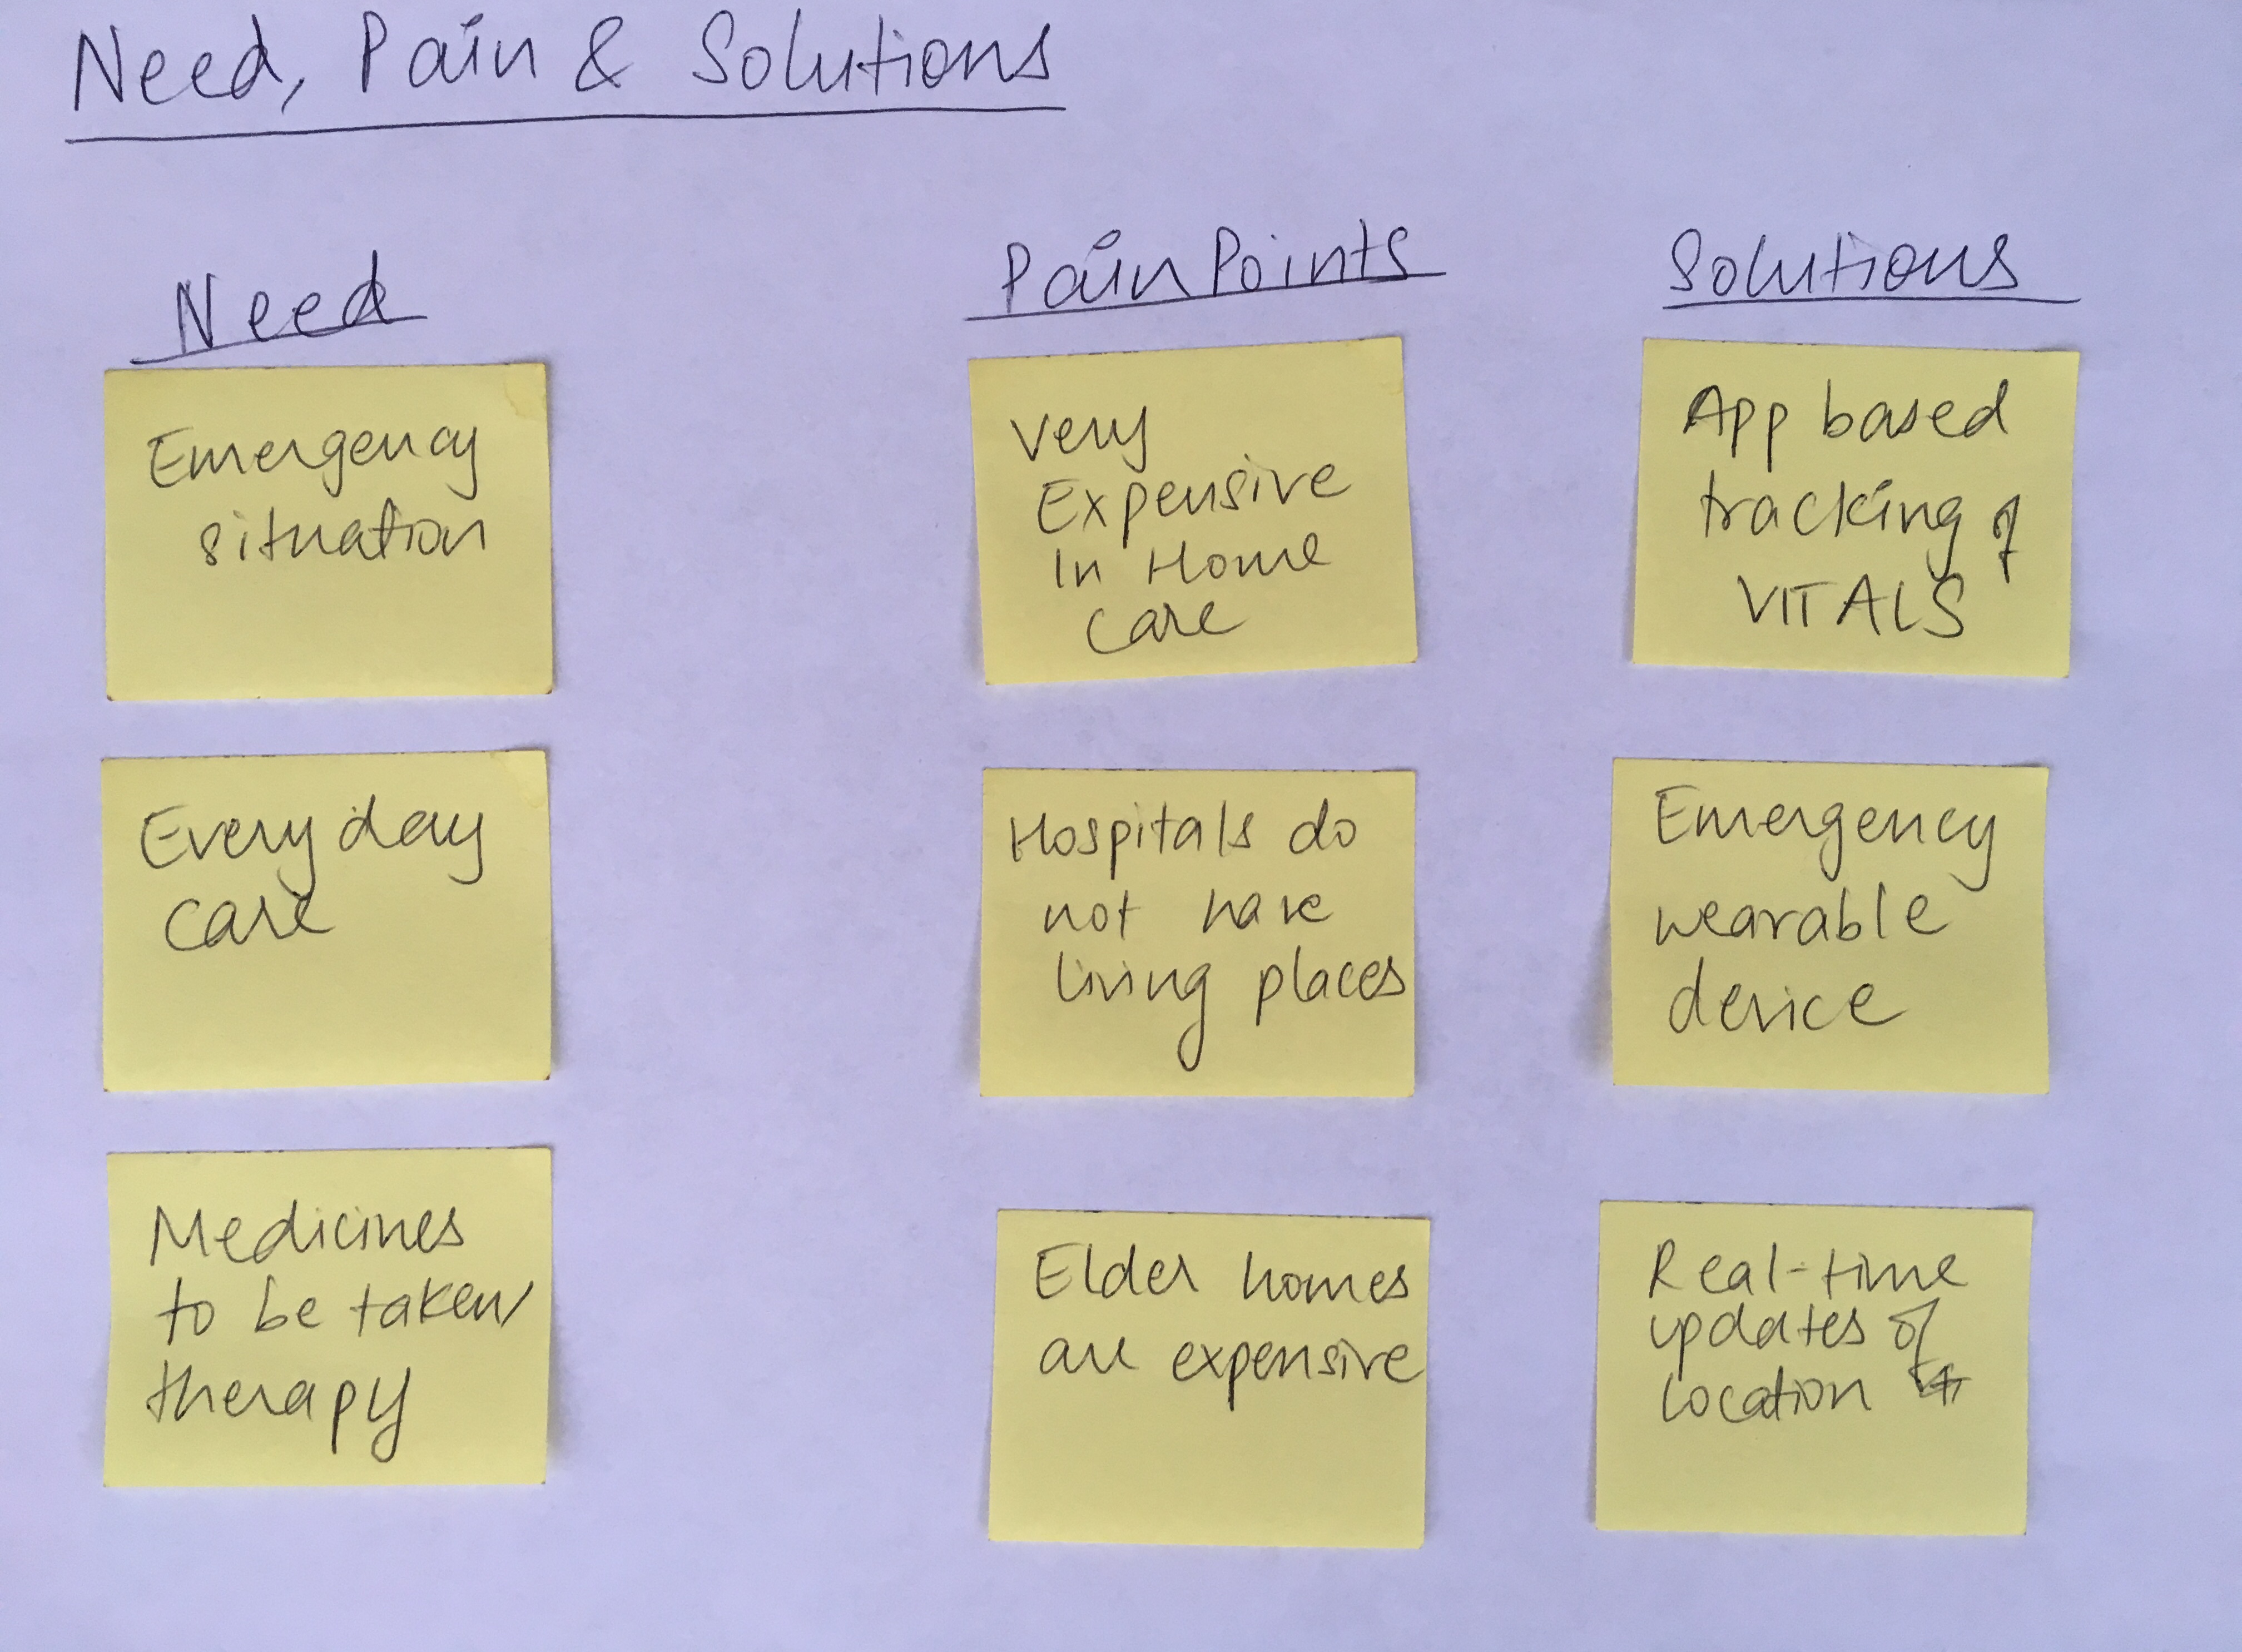 Need, Pain & Solutions
Need
Emergency
situation
Everyday
care
Medicines
to be taken/
therapy
Pain Points
Very
Expensive
In Home
care
Hospitals do
not have
living places
Elder homes
are expensive
Solutions
App based
tracking of
VITALS
Emergency
wearable
device
Real-time
updates of
location